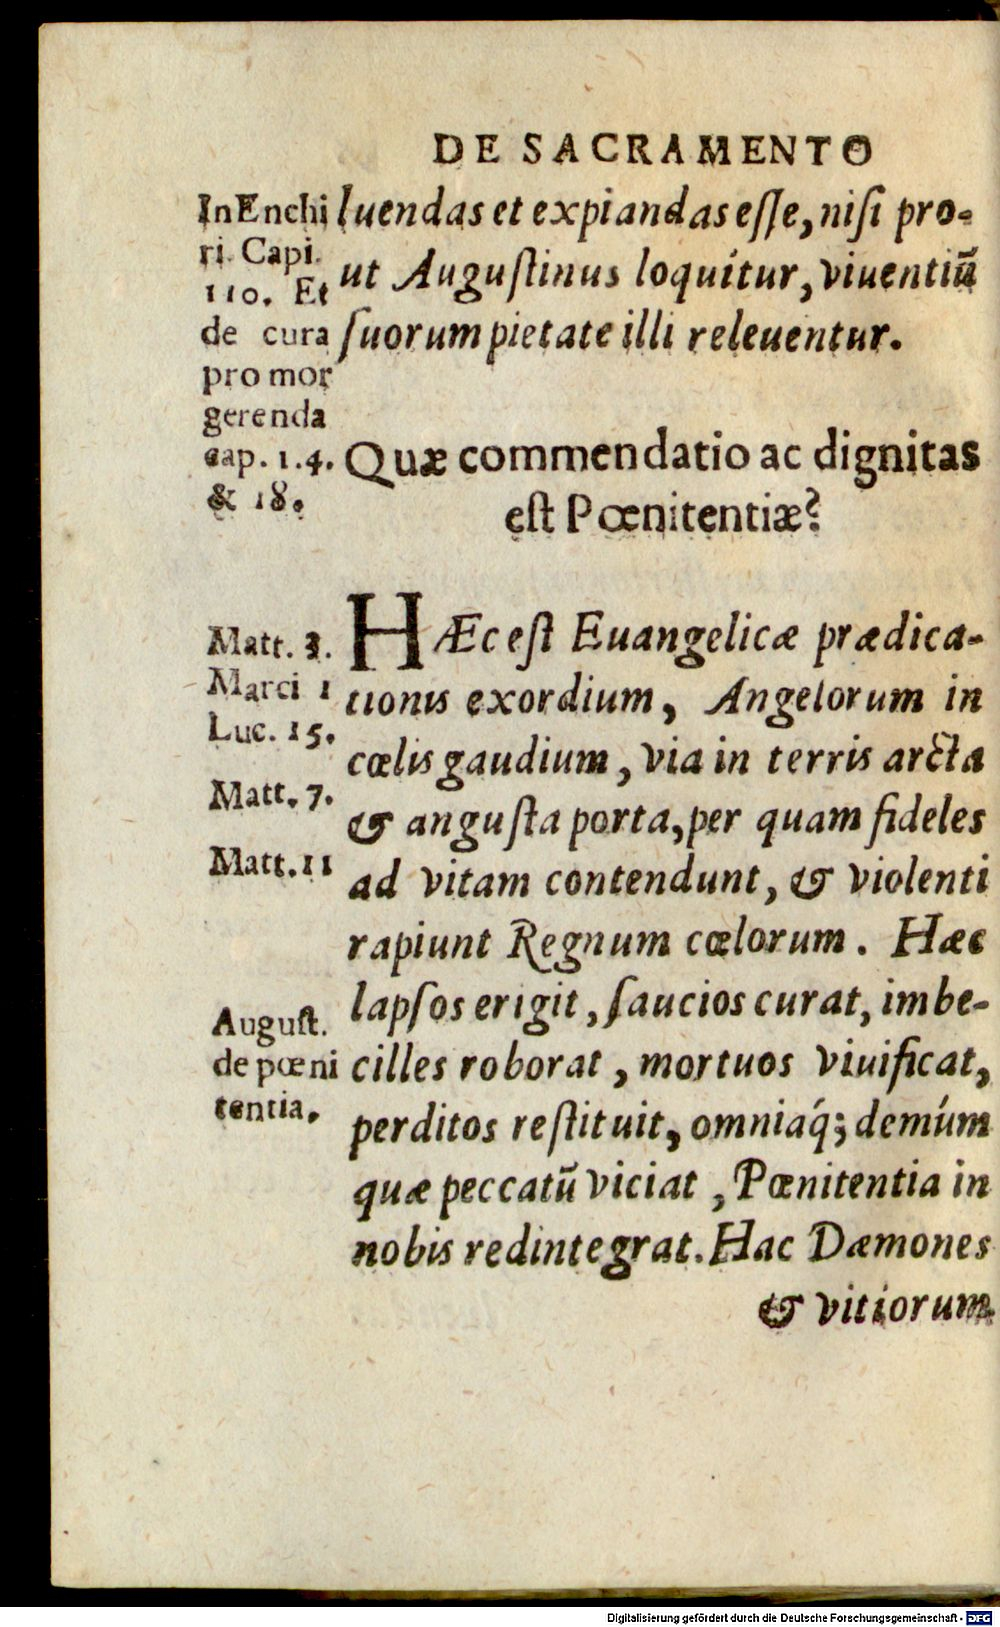 DE SACRAMENTO
luendas et expiandas eſſe, niſi pro-
ut Auguſtinus loquitur, viuentiū
ſuorum pietate illi releuentur.
InEnchi
ri. Capi.
110. Et
de cura
pro mor
gerenda
cap. 1.4.
& 18.
Quæ commendatio ac dignitas
eſt Pœnitentiæ?
HÆc eſt Euangelicæ prædica-
tionis exordium, Angelorum in
cœlis gaudium, via in terris arcta
& anguſta porta, per quam fideles
ad vitam contendunt, & violenti
rapiunt Regnum cœlorum. Hæc
lapſos erigit, ſaucios curat, imbe-
cilles roborat, mortuos viuificat,
perditos reſtituit, omniaq́; demúm
quæ peccatū viciat, Pœnitentia in
nobis redintegrat. Hac Dæmones
& vitiorum
Matt. 3.
Marci 1
Luc. 15.
Matt. 7.
Matt. 11
Auguſt.
de pœni
tentia.
Digitalisierung gefördert durch die Deutsche Forschungsgemeinschaft - DFG